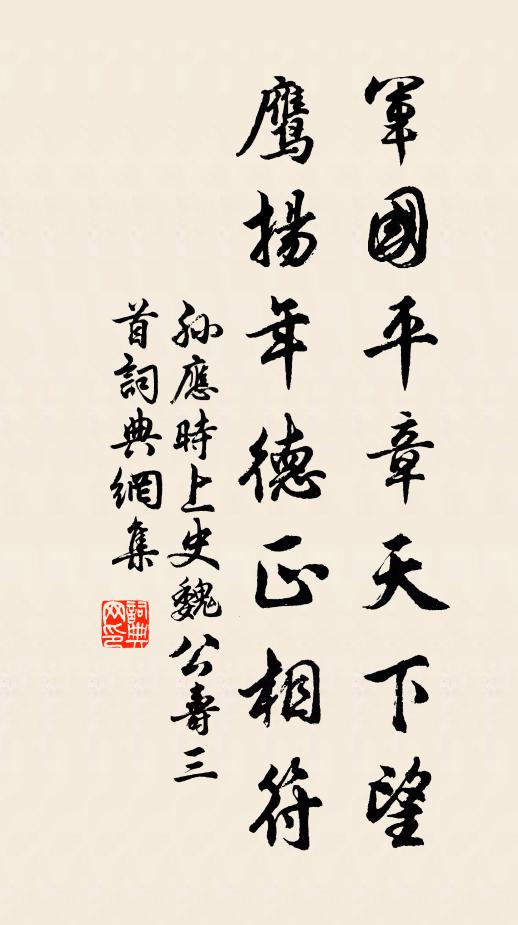 軍國平章天下望
鷹揚年德正相符
孙應時上史魏公壽三
首詞典網集
詞典
网印